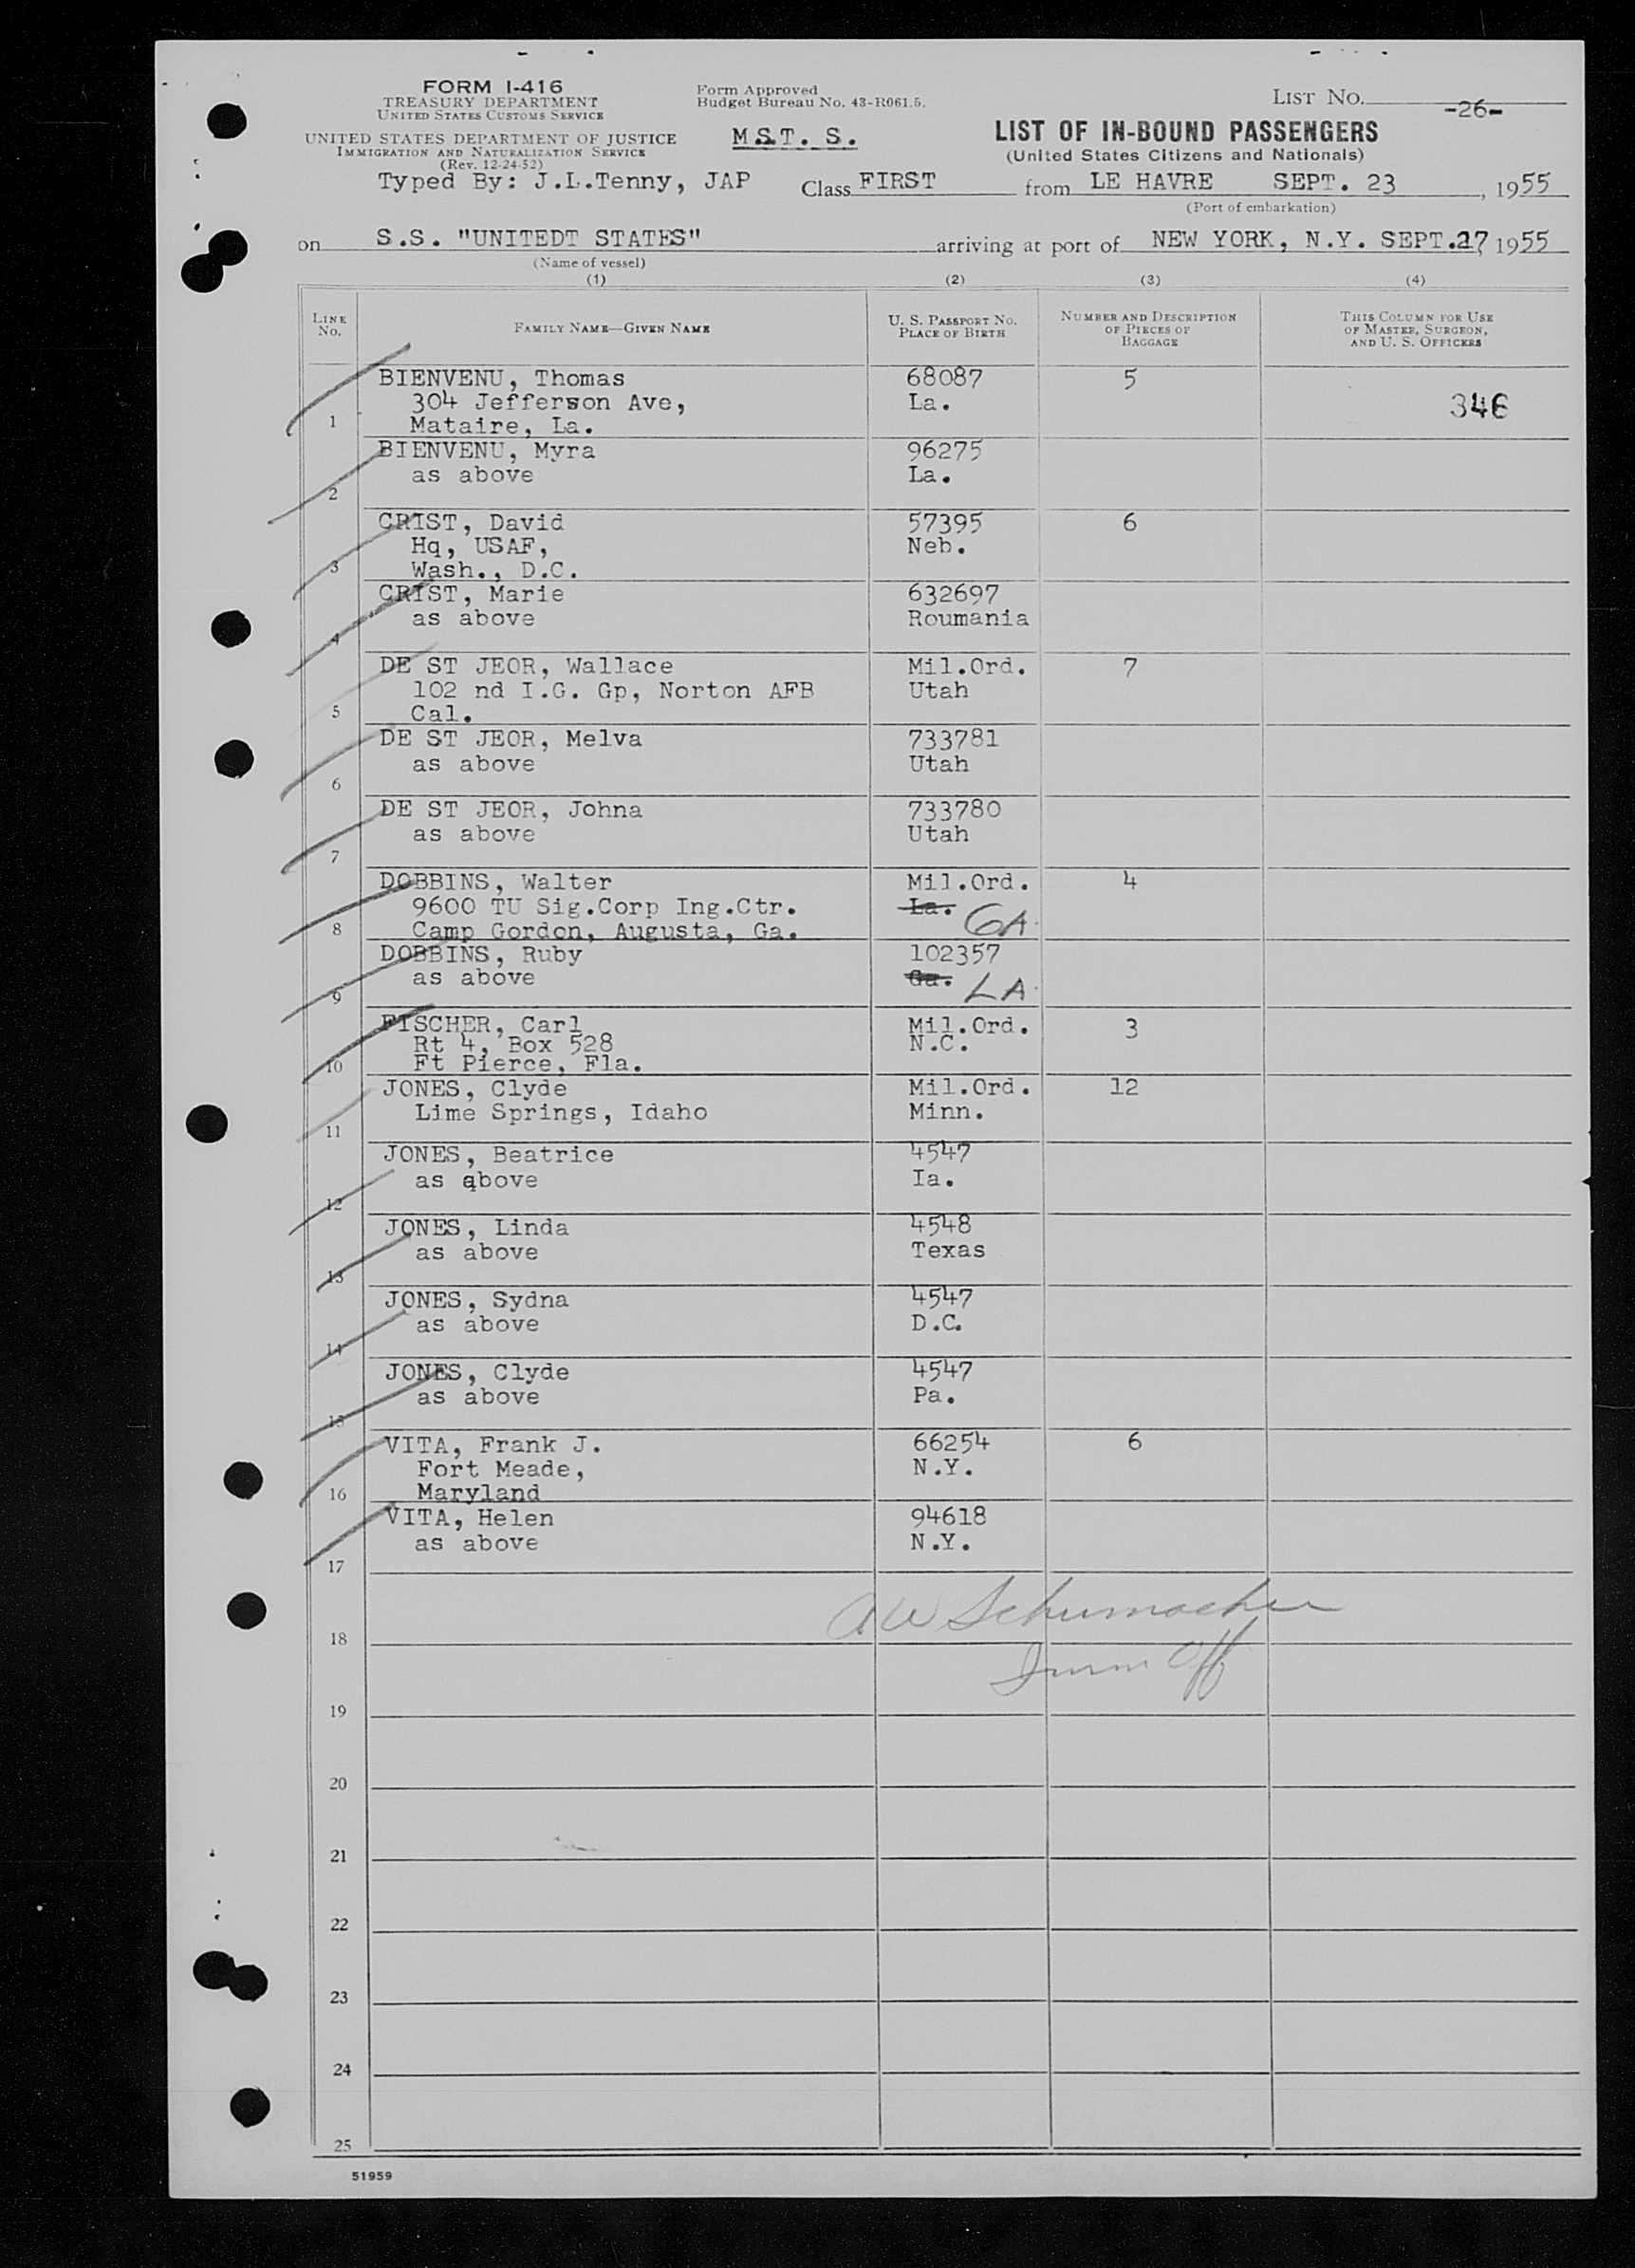 FORM I-416
TREASURY DEPARTMENT
UNITED STATES CUSTOMS SERVICE
UNITED STATES DEPARTMENT OF JUSTICE
IMMIGRATION AND NATURALIZATION SERVICE
(Rev. 12-24-52)
Form Approved
Budget Bureau No. 43-R061.5.
M.S.T. S.
LIST NO. -26-
LIST OF IN-BOUND PASSENGERS
(United States Citizens and Nationals)
Typed By: J.L.Tenny, JAP Class FIRST from LE HAVRE SEPT. 23, 1955
(Port of embarkation)
on S.S. "UNITEDT STATES" arriving at port of NEW YORK, N.Y. SEPT.27, 1955
(Name of vessel)
(1) (2) (3) (4)
LINE No. FAMILY NAME—GIVEN NAME U. S. PASSPORT NO. PLACE OF BIRTH NUMBER AND DESCRIPTION OF PIECES OF BAGGAGE THIS COLUMN FOR USE OF MASTER, SURGEON, AND U. S. OFFICERS
BIENVENU, Thomas 68087 5
304 Jefferson Ave, La. 346
1 Mataire, La.
BIENVENU, Myra 96275
as above La.
2
CRIST, David 57395 6
Hq, USAF, Neb.
3 Wash., D.C.
CRIST, Marie 632697
as above Roumania
4
DE ST JEOR, Wallace Mil.Ord. 7
102 nd I.G. Gp, Norton AFB Utah
5 Cal.
DE ST JEOR, Melva 733781
as above Utah
6
DE ST JEOR, Johna 733780
as above Utah
7
DOBBINS, Walter Mil.Ord. 4
9600 TU Sig.Corp Ing.Ctr. La. GA.
8 Camp Gordon, Augusta, Ga.
DOBBINS, Ruby 102357
as above Ga. LA.
9
FISCHER, Carl Mil.Ord. 3
Rt 4, Box 528 N.C.
10 Ft Pierce, Fla.
JONES, Clyde Mil.Ord. 12
Lime Springs, Idaho Minn.
11
JONES, Beatrice 4547
as above Ia.
12
JONES, Linda 4548
as above Texas
13
JONES, Sydna 4547
as above D.C.
14
JONES, Clyde 4547
as above Pa.
15
VITA, Frank J. 66254 6
Fort Meade, N.Y.
16 Maryland
VITA, Helen 94618
as above N.Y.
17
AW Schumacher
18
Imm Off
19
20
21
22
23
24
25
51959